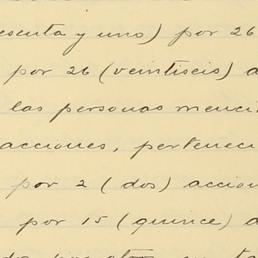 esenta y uno) por 26
por 26 (veintiseis) a
las personas menci
acciones, perteneci
por 2 (dos) accion
por 15 (quince) a